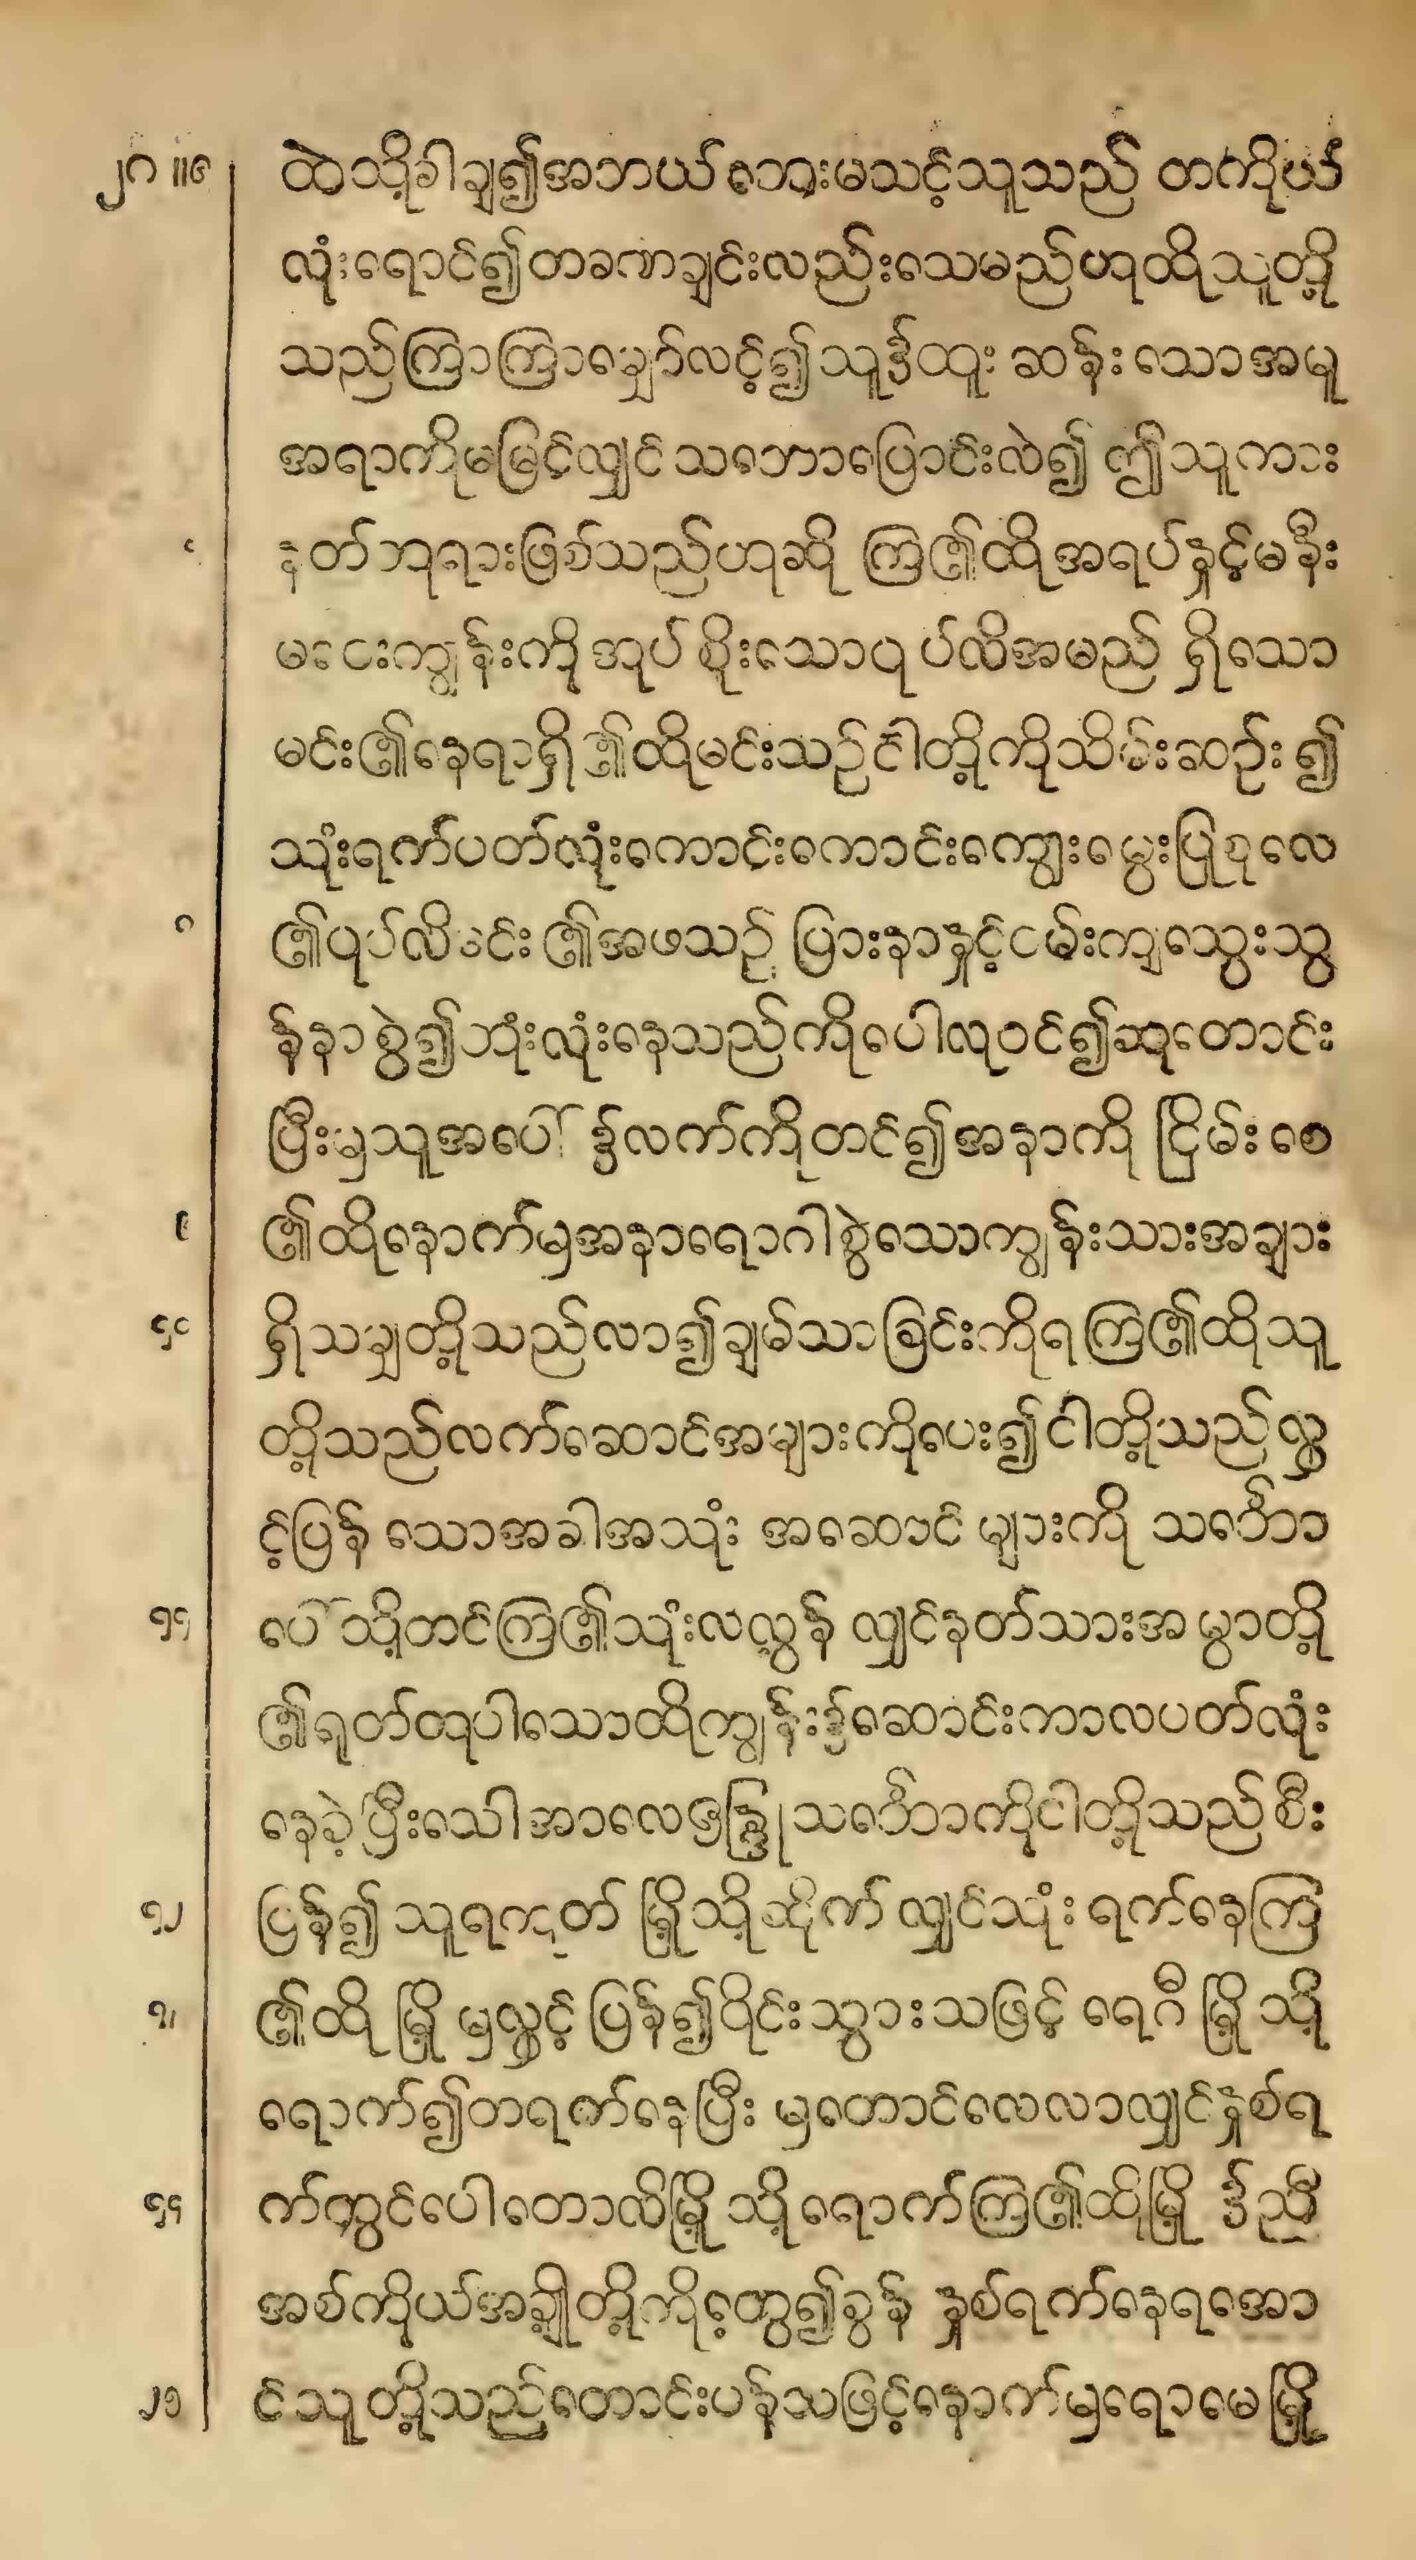 ၂၈ ။ ၆ ထဲသို့ခါချ၍အဘယ်ဘေးမသင့်သူသည် တကိုယ်
လုံးရောင်၍တခဏချင်းလည်းသေမည်ဟုထိုသူတို့
သည်ကြာကြာမျှော်လင့်၍သူ၌ထူးဆန်းသောအမူ
အရာကိုမမြင့်လျှင်သဘောပြောင်းလဲ၍ ဤသူကား
နတ်ဘုရားဖြစ်သည်ဟုဆို ကြ၏ထိုအရပ်နှင့်မနီး
မဝေးကျွန်းကိုအုပ်စိုးသောပုပ်လိအမည် ရှိသော
မင်း၏နေရာရှိ၏ထိုမင်းသည်ငါတို့ကိုသိမ်းဆည်း၍
၈ သုံးရက်ပတ်လုံးကောင်းကောင်းကျွေးမွေးပြုစုလေ
၏ပုပ်လိမင်း၏အဖသည် ဖြားနာနှင့်ငမ်းကျသွေးသွ
န်နာစွဲ၍ဘုံးလုံးနေသည်ကိုပေါလုဝင်၍ဆုတောင်း
ပြီးမှသူအပေါ်၌လက်ကိုတင်၍အနာကို ငြိမ်းစေ
၉ ၏ထိုနောက်မှအနာရောဂါစွဲသောကျွန်းသားအချား
၁၀ ရှိသမျှတို့သည်လာ၍ချမ်သာခြင်းကိုရကြ၏ထိုသူ
တို့သည်လက်ဆောင်အများကိုပေး၍ငါတို့သည်လွှ
င့်ပြန် သောအခါအသုံး အဆောင် များကို သင်္ဘော
၁၁ ပေါ်သို့တင်ကြ၏သုံးလလွန် လျှင်နတ်သားအမွာတို့
၏ရုတ်တုပါသောထိုကျွန်း၌ဆောင်းကာလပတ်လုံး
နေခဲ့ပြီးသေါအာလေဇန္ဒြုသင်္ဘောကိုငါတို့သည်စီး
၁၂ ပြန်၍ သူရကုတ် မြို့သို့ဆိုက် လျှင်သုံး ရက်နေကြ
၁၃ ၏ထို မြို့ မှလွှင့် ပြန်၍ဝိုင်းသွားသဖြင့် ရေဂီ မြို့ သို့
ရောက်၍တရက်နေပြီး မှတောင်လေလာလျှင်နှစ်ရ
၁၄ က်တွင်ပေါတောလိမြို့ သို့ရောက်ကြ၏ထိုမြို့ ၌ညီ
အစ်ကိုယ်အချို့တို့ကိုတွေ့၍ခွန် နှစ်ရက်နေရအော
၁၅ င်သူတို့သည်တောင်းပန်သဖြင့်နောက်မှရောမေမြို့